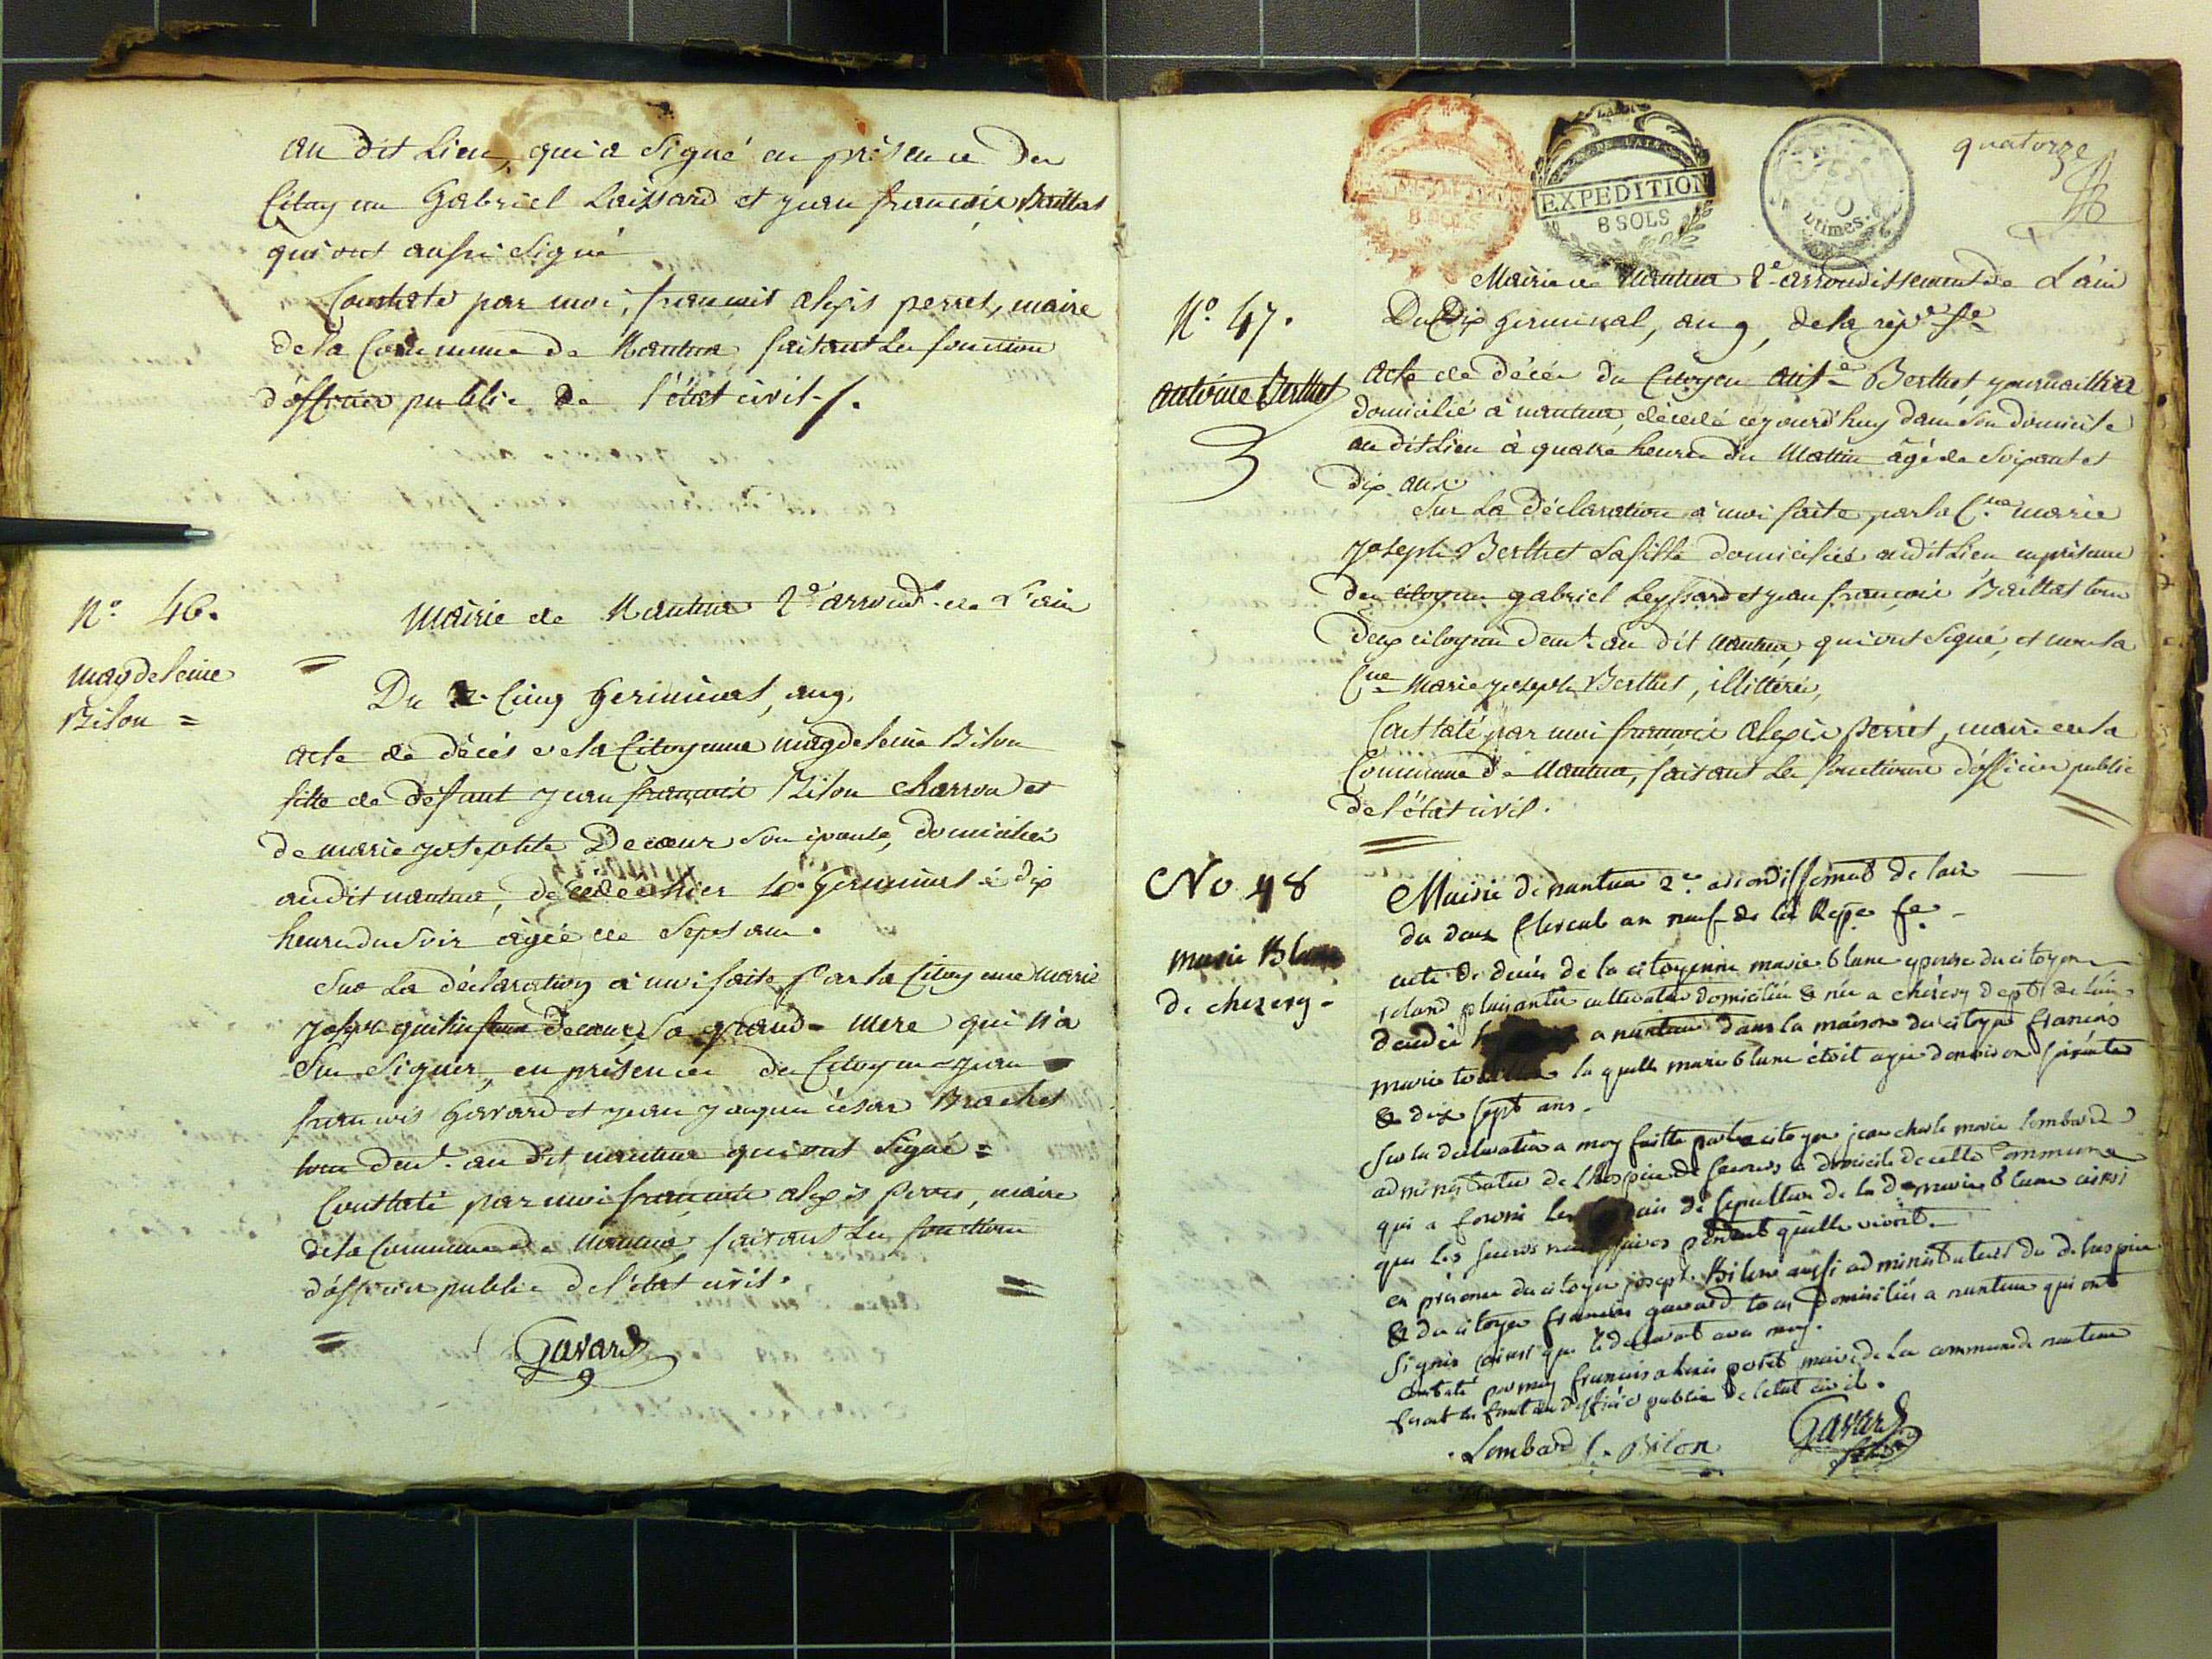 au dit Lieu, qui a signé en présence des
Citoyens Gabriel Laissard et jean françois Baillat
qui ont aussi signé
Constaté par moi, françois alexis perret, maire
de la Commune de Nantua faisant les fonctions
d'officier public de l'état civil.
N.° 46.
magdeleine
Bilon =
Mairie de Nantua 2.e arrond.t de L'ain
Du Cinq Germinal, an 9,
acte de décès de la Citoyenne magdeleine Bilon
fille de défunt jean françois Bilon charron et
de marie josephte Decoeur son épouse, domiciliés
audit nantua, décédée hier 4 Germinal à dix
heures du soir agée de Sept ans.
Sur La déclaration à moi faite par la Citoyenne marie
Decoeur sa grand-mere qui n'a
Su Signer, en présence des Citoyens jean
francois Gavard et jean jacques césar Brachet
tous dem.t au dit nantua qui ont Signé =
Constaté par moi françois alexis perret, maire
de la Commune de nantua, faisant les fonctions
d'officier public de l'état civil.
Gavard
quatorze
EXPEDITION
8 SOLS
EXPEDITION
8 SOLS
50
Ctimes.
Mairie de Nantua 2.e arrondissement de L'ain
N.° 47.
Du Dix Germinal, an 9, de la rép.e f.e
antoine Berthet
acte de décès du Citoyen ant.e Berthet journaillier
domicilié à nantua, décédé cejourd'huy dans son domicile
au dit Lieu à quatre heures du Mattin âgé de soixante et
dix ans.
3
Sur La déclaration à moi faite, par la C.ne marie
joseph Berthet sa fille domiciliée audit Lieu en présence
des citoyens gabriel Leyssard et jean françois Baillat tous
deux citoyens dem.t au dit nantua, qui ont Signé, et non la
C.ne Marie joseph Berthet, illittérée,
Constaté par moi françois alexis perret, maire de la
Commune de Nantua, faisant les fonctions d'officier public
de l'état civil.
No 48
Mairie de nantua 2.e arrondissement de lain
du deux floreal an neuf de la Repe fe
marie Blanc
de chezery -
acte de decés de la citoyenne marie blanc epouse du citoyen
roland plaisantin cultivateur domiciliée & née a chésery dept. de l'ain
décédée a nantua dans la maison du citoyen francois
marie la quelle marie blanc étoit agée d'environ soixante
& dix sept ans.
Sur la declaration a moy faitte par le citoyen jean charle marie lombard
administrateur de lhospice de secours a domicile de cette Commune
qui a fourni les de sepulture de la d. marie blanc ainsi
que les secours necessaires pendant quelle vivoit.
en présence du citoyen joseph Bilon aussi administrateur du d. hospice
& du citoyen francois gavard tous domiciliés a nantua qui ont
signés ainsi que le declarant avec moy.
constaté par moy francois alexis perret maire de la commune de nantua
fesant les fonctions d'officier public de létat civil.
Lombard J. Bilon Gavard